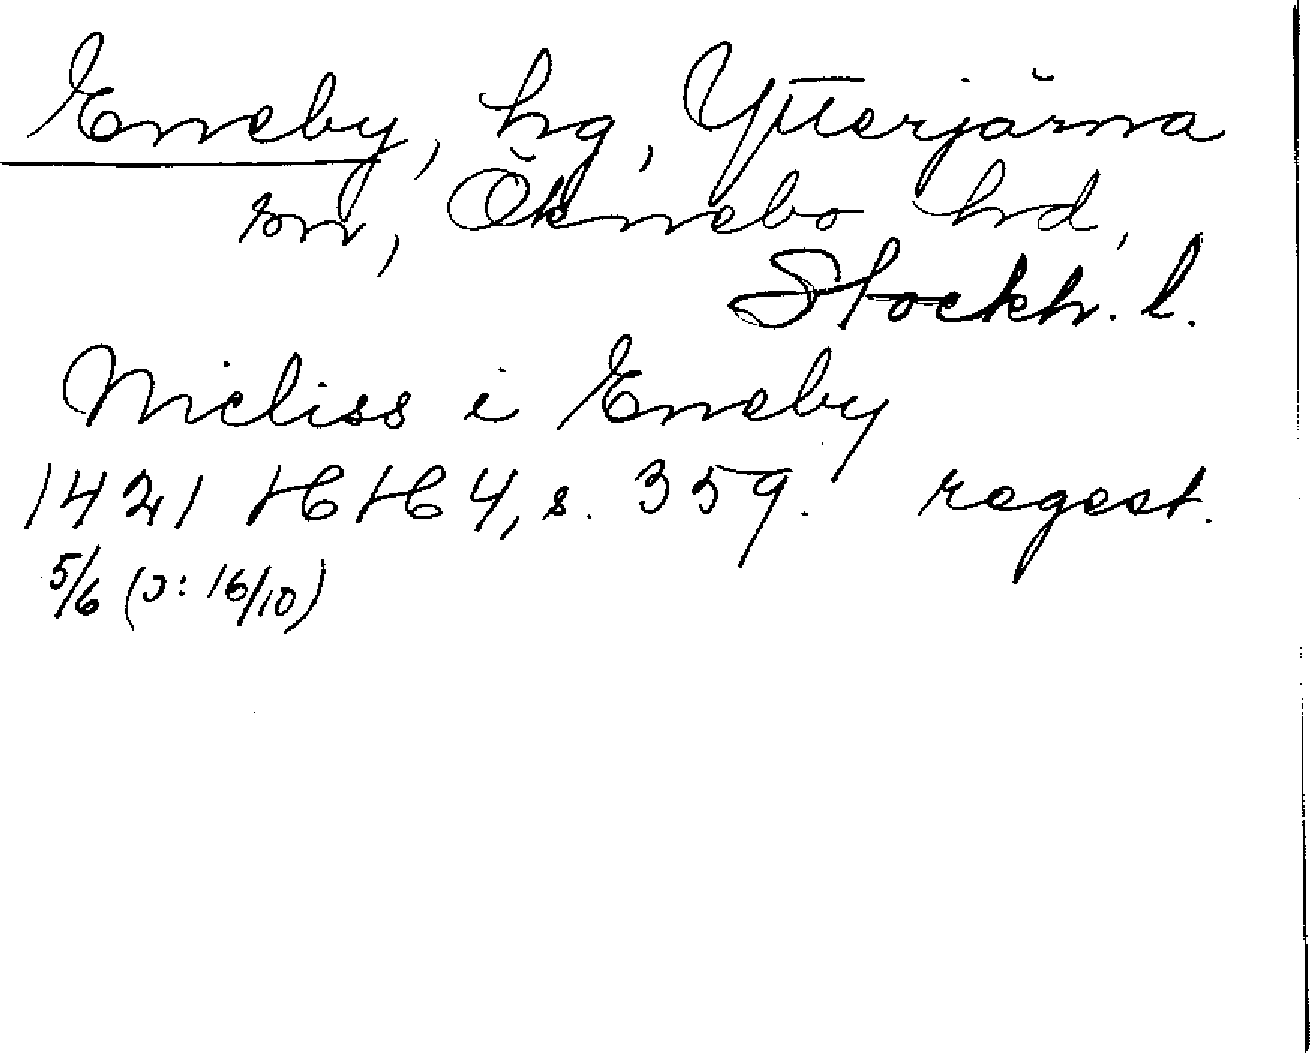 Eneby, hg, Ytterjärna
sn, Öknebo hd,
Stockh. l.
Nicliss i Eneby
1421 HH 4, s. 359. regest.
5/6 (ɔ: 16/10)